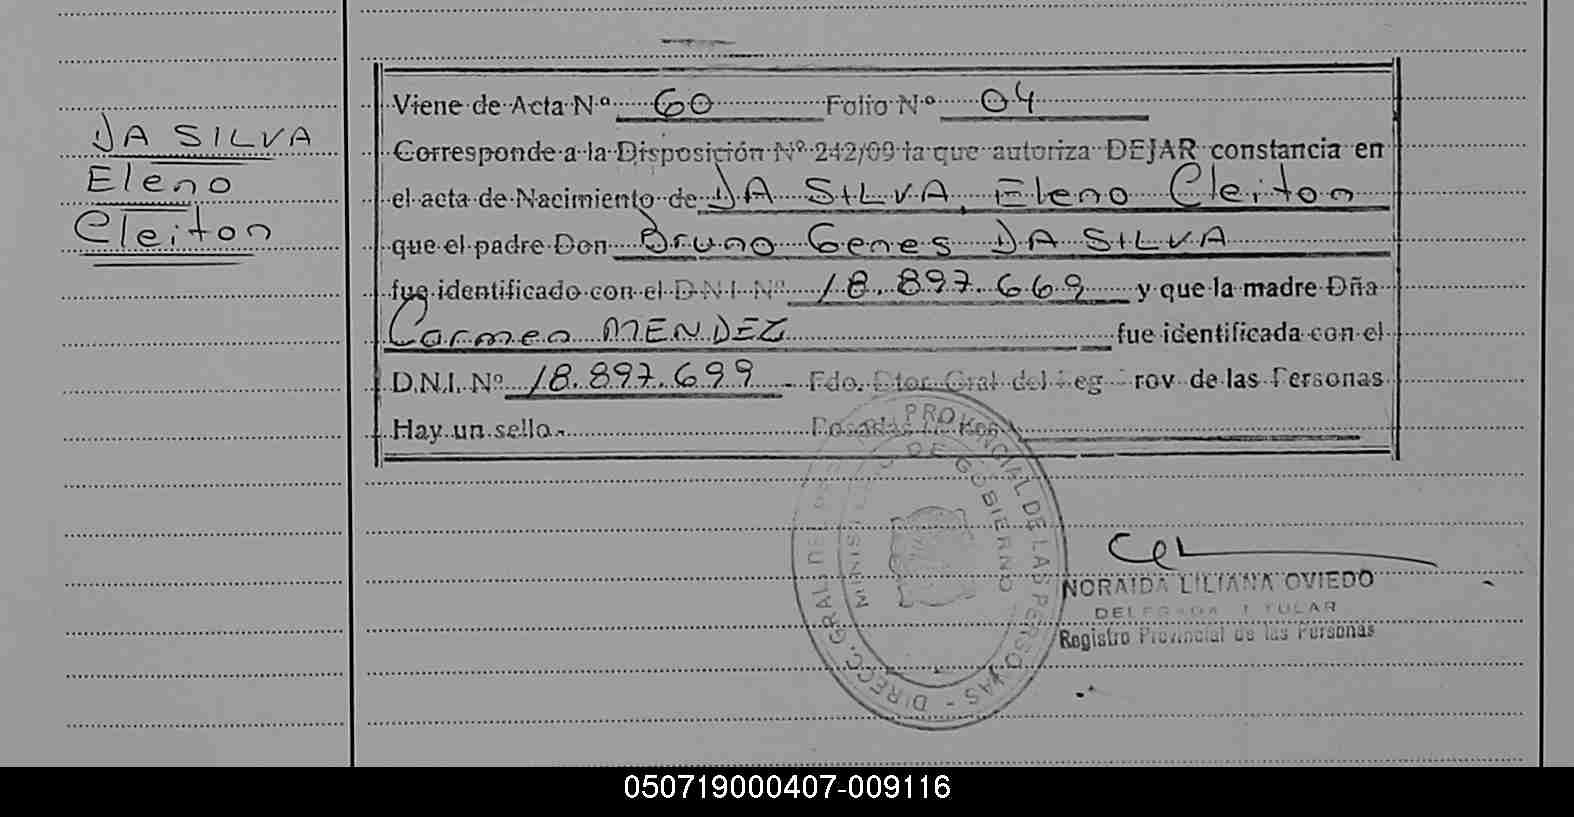 DA SILVA
Eleno
Cleiton
Viene de Acta Nº 60 Folio Nº 04
Corresponde a la Disposición Nº 242/09 la que autoriza DEJAR constancia en
el acta de Nacimiento de DA SILVA, Eleno Cleiton
que el padre Don Bruno Genes DA SILVA
fue identificado con el D.N.I. Nº 18.897.669 y que la madre Dña
Carmen MENDEZ fue identificada con el
D.N.I. Nº 18.897.699 - Fdo. Dtor. Gral del Reg Prov de las Personas
Hay un sello.- Posadas
DIRECC. GRAL. DEL REG. PROVINCIAL DE LAS PERSONAS -
MINISTERIO DE GOBIERNO
NORAIDA LILIANA OVIEDO
DELEGADA TITULAR
Registro Provincial de las Personas
050719000407-009116